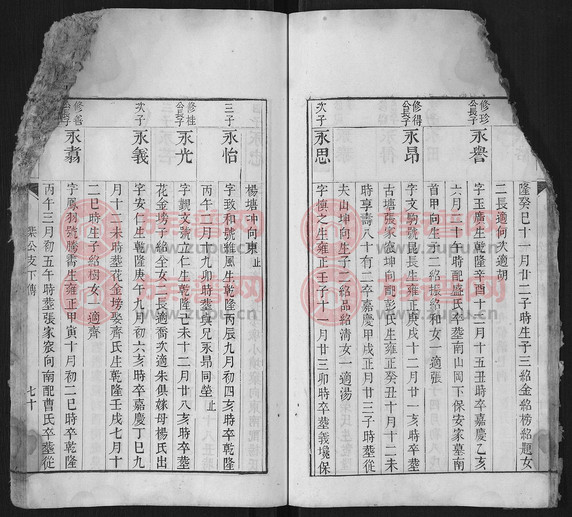 隆癸巳十一月廿二子時生子三紹金紹榜紹題女
二長適何次適胡
修珍公長子
永譽
字玉廣生乾隆辛酉十二月十五丑時卒嘉慶乙亥
六月三十午時配盛氏卒塟南山岡下保安家墓南
首甲向生子二紹振紹和女一適張
修得公長子
永昂
字文駒號昆長生雍正庚戌十二月廿一亥時卒塟
古塘張家嶺坤向配彭氏生雍正癸丑十月十二未
時享壽八十有二卒嘉慶甲戌正月廿三子時塟從
夫山坤向生子二紹品紹清女一適湯
次子
永思
字慎之生雍正壬子十二月廿三卯時卒塟義塊保
楊塘冲向東止
三子
永怡
字致和號維風生乾隆丙辰九月初四亥時卒乾隆
丙午二月十九卯時塟與兄永昂同塋止
修桂公長子
永光
字觀文號立仁生乾隆己未十二月廿八亥時卒塟
花金塝子紹全女二長適喬次適朱俱嫁母楊氏出
次子
永義
字安仁生乾隆庚午九月初六亥時卒嘉慶丁巳九
月十二未時塟花金塝娶齊氏生乾隆壬戌七月十
二巳時生子紹樹女一適齊
修善公長子
永翥
字鳳羽號騰霄生雍正甲寅十月初二巳時卒乾隆
丙午三月初五午時塟張家嶺向南配曹氏卒塟從
公支下傳
七十
族譜網
www.zupu.cn